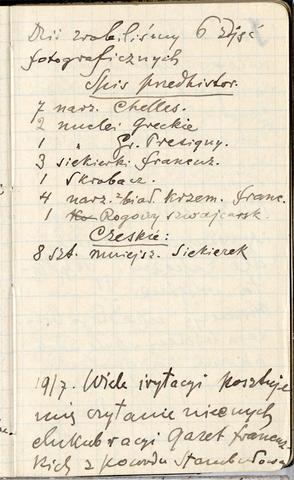 Dziś zrobiliśmy 6 zdjęć
fotograficznych
Spis predhistor.
7 narz. Chelles.
2 nuclei Greckie
1 " Gr. Presigny.
3 siekierki francuz.
1 Skrobacz.
4 narz. biał. Krzem. franc.
1 Rogowy szwajcarsk.
Czeskie:
8 szt. mniejsz. Siekierek
19/7. Wiele irytacyi kosztuje
mię czytanie niecnych
elukubracyi Gazet francuz
kich z powodu Stambułowa